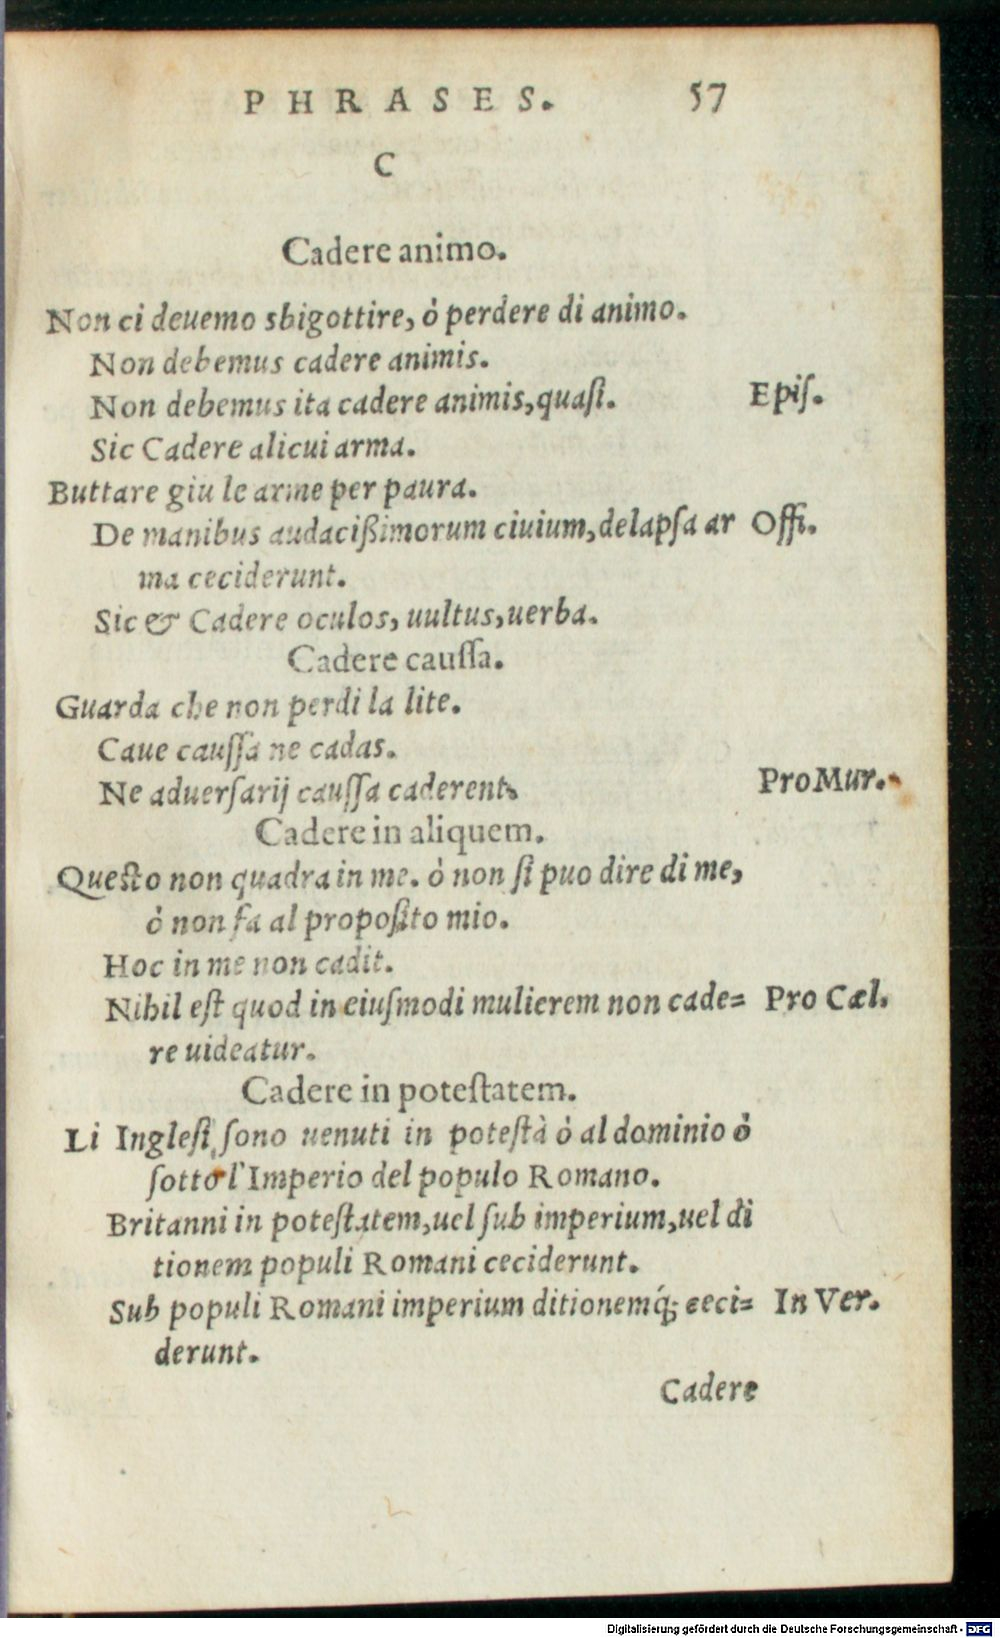 PHRASES. 57
C
Cadere animo.
Non ci deuemo sbigottire, ò perdere di animo.
Non debemus cadere animis.
Non debemus ita cadere animis, quaſi. Epiſ.
Sic Cadere alicui arma.
Buttare giu le arme per paura.
De manibus audacißimorum ciuium, delapſa ar Offi.
ma ceciderunt.
Sic & Cadere oculos, uultus, uerba.
Cadere cauſſa.
Guarda che non perdi la lite.
Caue cauſſa ne cadas.
Ne aduerſarij cauſſa caderent. Pro Mur.
Cadere in aliquem.
Queſto non quadra in me. ò non ſi puo dire di me,
ò non fa al propoſito mio.
Hoc in me non cadit.
Nihil eſt quod in eiuſmodi mulierem non cade= Pro Cæl.
re uideatur.
Cadere in poteſtatem.
Li Ingleſi, ſono uenuti in poteſtà ò al dominio ò
ſotto l'Imperio del populo Romano.
Britanni in poteſtatem, uel ſub imperium, uel di
tionem populi Romani ceciderunt.
Sub populi Romani imperium ditionemq́; ceci= In Ver.
derunt.
Cadere
Digitalisierung gefördert durch die Deutsche Forschungsgemeinschaft - DFG